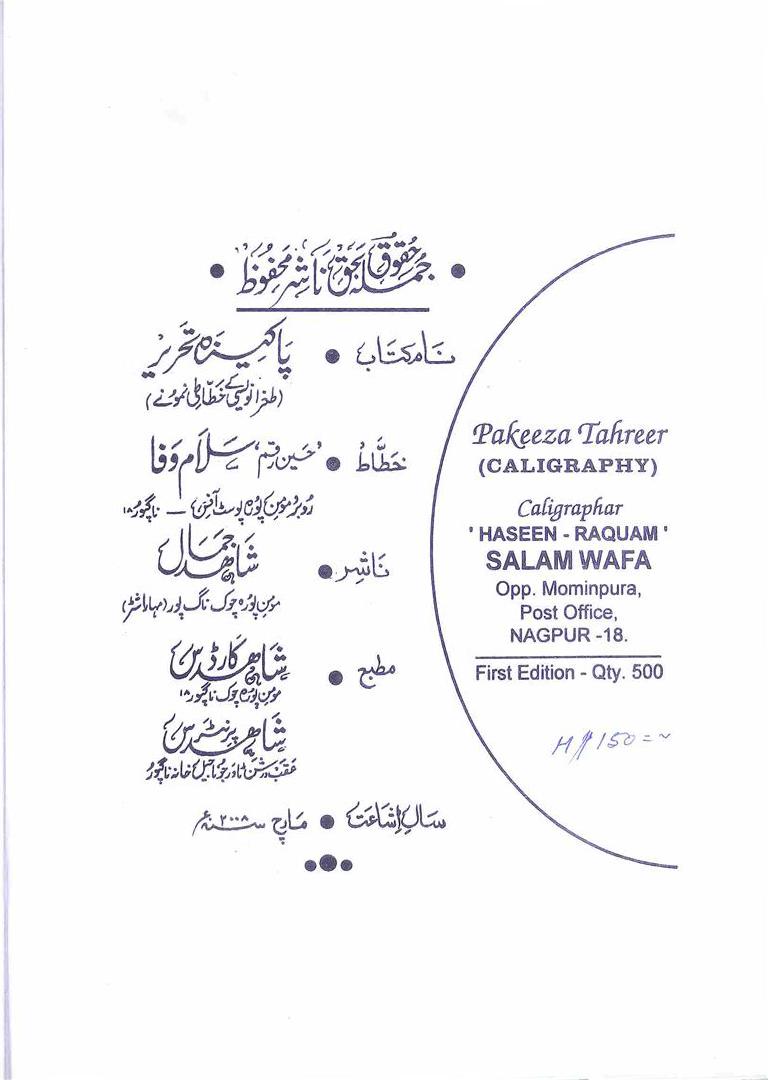 جملہ حقوق بحق ناشر محفوظ
نام کتاب ● پاکیزہ تحریر
(طغرا نویسی کے خطاطی نمونے)
خطّاط ● ’حسین رقم‘ سلام وفا
روبرو مومن پورہ پوسٹ آفس — ناگپور ۱۸
ناشر ● شاھد جمال
مومن پورہ چوک ناگ پور (مہاراشٹر)
مطبع ● شاھد کارڈس
مومن پورہ چوک ناگپور ۱۸
شاھد پرنٹرس
عقب درشن ٹاور جونا جیل خانہ ناگپور
سال اشاعت ● مارچ سنہ ۲۰۰۸ء
Pakeeza Tahreer
(CALIGRAPHY)
Caligraphar
' HASEEN - RAQUAM '
SALAM WAFA
Opp. Mominpura,
Post Office,
NAGPUR -18.
First Edition - Qty. 500
150=~